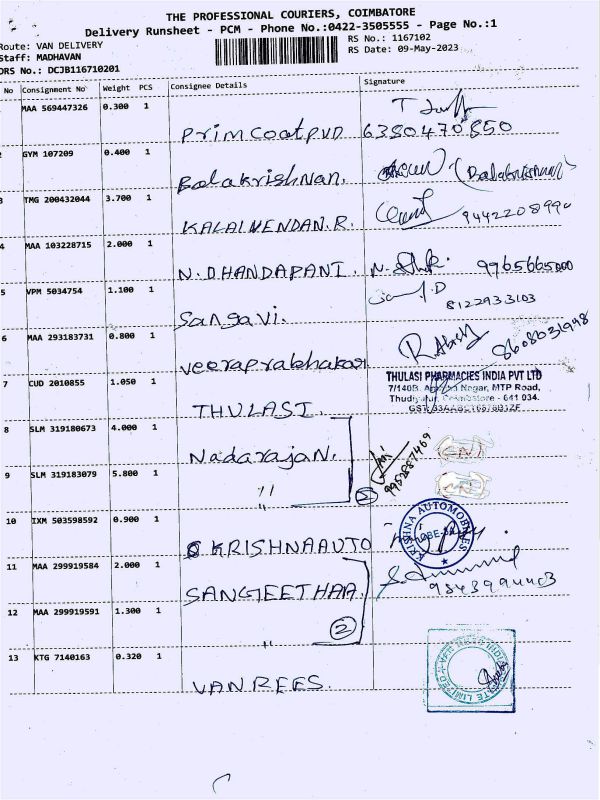 THE PROFESSIONAL COURIERS, COIMBATORE
Delivery Runsheet - PCM - Phone No.:0422-3505555 - Page No.:1
Route: VAN DELIVERY
Staff: MADHAVAN
DRS No.: DCJB116710201
RS No.: 1167102
RS Date: 09-May-2023
No Consignment No Weight PCS Consignee Details Signature
MAA 569447326 0.300 1
Primcoat PVD 6380470850
2 GYM 107209 0.400 1
Balakrishnan. (Balakrishnan)
3 TMG 200432044 3.700 1
KALAIVENDAN.R.
4 MAA 103228715 2.000 1
N. DHANDAPANI.
5 VPM 5034754 1.100 1
8122933103
Sangavi.
6 MAA 293183731 0.800 1
8608031948
veeraprabhakar
7 CUD 2010855 1.050 1
THULASI PHARMACIES INDIA PVT LTD
Nagar, MTP Road,
Coimbatore - 641 034.
THULASI.
8 SLM 319180673 4.000 1
Nadarajan.
9952887469
9 SLM 319183079 5.800 1
"
10 IXM 503598592 0.900 1
KRISHNA AUTOMOBILES
KRISHNA AUTO
11 MAA 299919584 2.000 1
SANGEETHAA.
12 MAA 299919591 1.300 1
2
"
13 KTG 7140163 0.320 1
VAN REES.